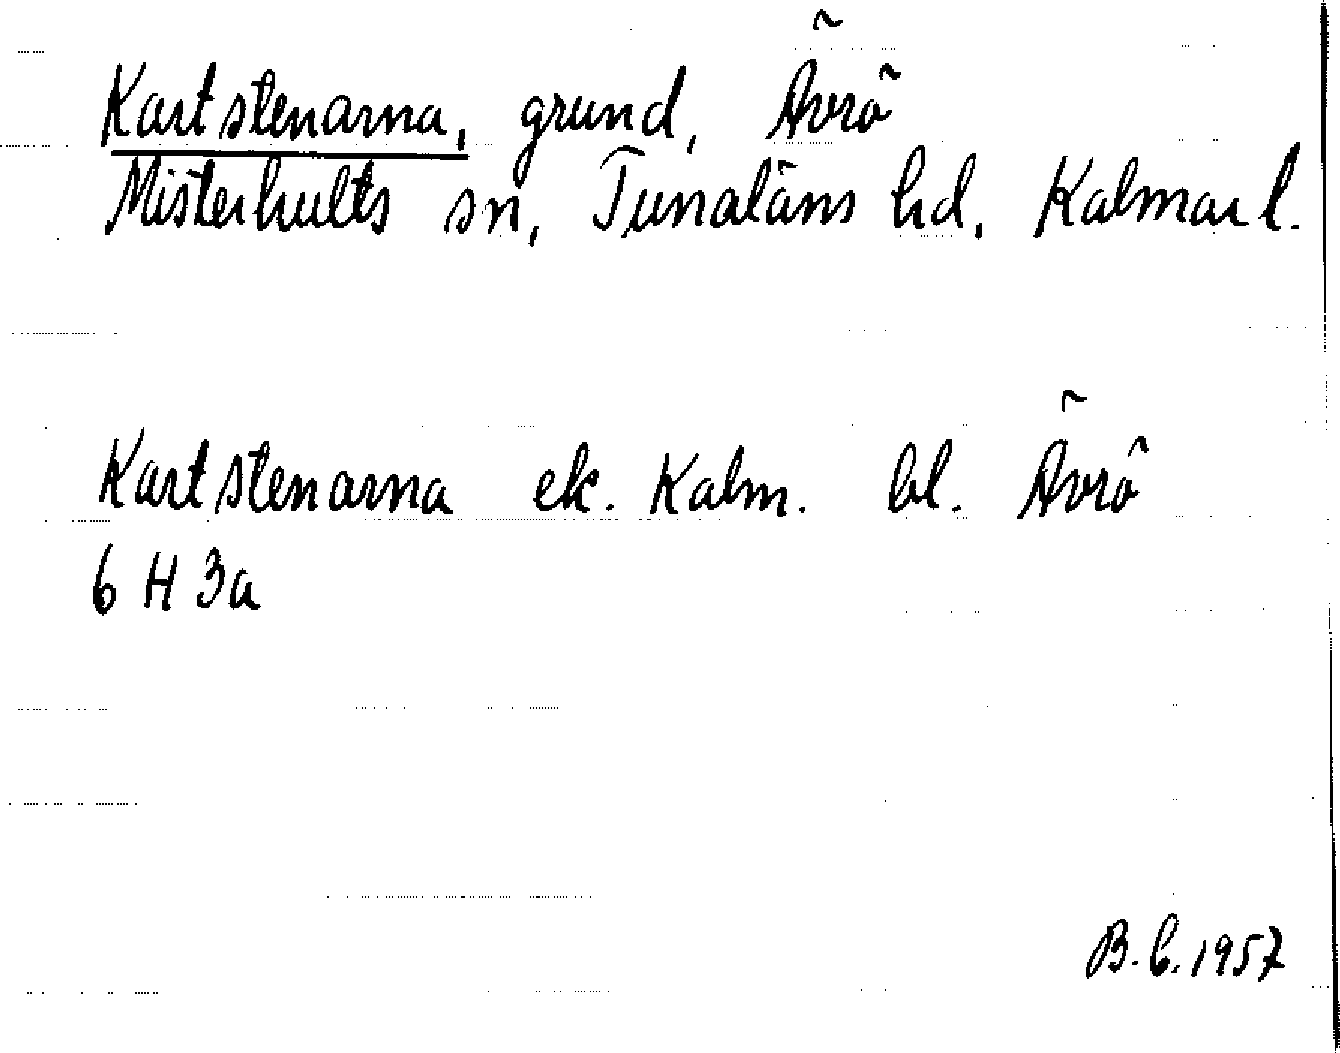 Kartstenarna, grund, Ävrö
Misterhults sn, Tunaläns hd, Kalmar l.
Kartstenarna ek. Kalm. bl. Ävrö
6 H 3a
B.C. 1957